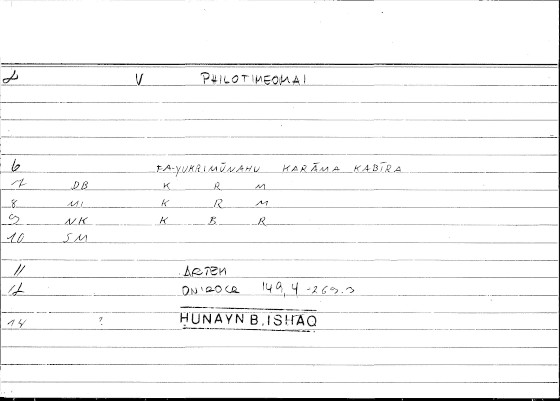 2 V PHILOTIMEOMAI
6 FA-YUKRIMŪNAHU KARĀMA KABĪRA
7 DB K R M
8 MI K R M
9 NK K B R
10 SM
11 ARTEM
12 ONIROCR 149,4 -269.3
14 ? HUNAYN B. ISHAQ